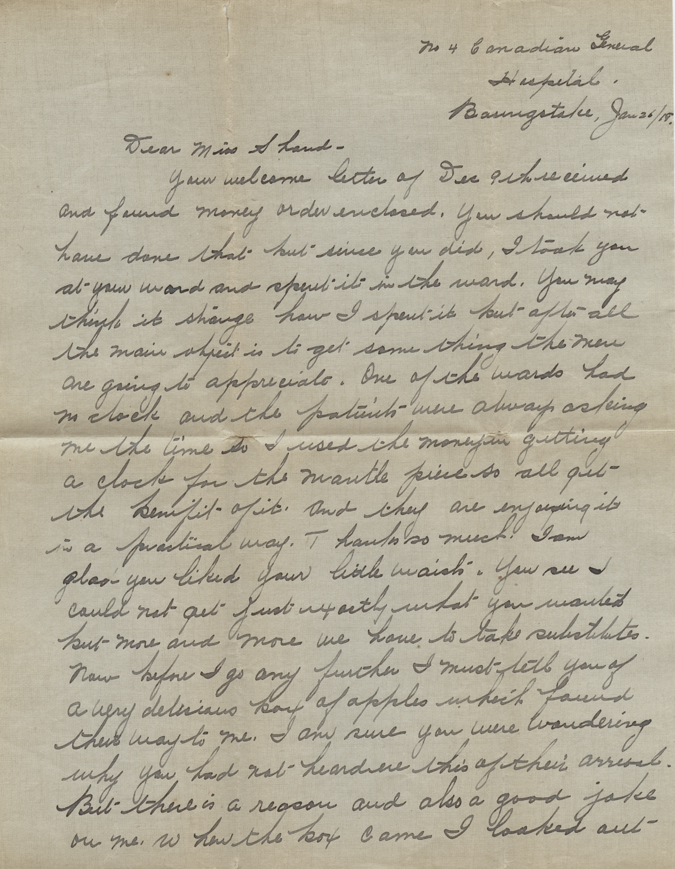 No 4 Canadian General
Hospital.
Basingstoke, Jan 26/18.
Dear Miss Shand-
Your welcome letter of Dec 9th received
and found money order enclosed. You should not
have done that but since you did, I took you
at your word and spent it in the ward. You may
think it strange how I spent it but after all
the main object is to get some thing the men
are going to appreciate. One of the wards had
no clock and the patients were always asking
me the time so I used the money in getting
a clock for the mantle piece so all get
the benefit of it. And they are enjoying it
in a practical way. Thanks so much! I am
glad you liked your little waists. You see I
could not get just exactly what you wanted
but more and more we have to take substitutes.
Now before I go any further I must tell you of
a very delicious box of apples which found
their way to me. I am sure you were wondering
why you had not heard ere this of their arrival.
But there is a reason and also a good joke
on me. When the box came I looked out